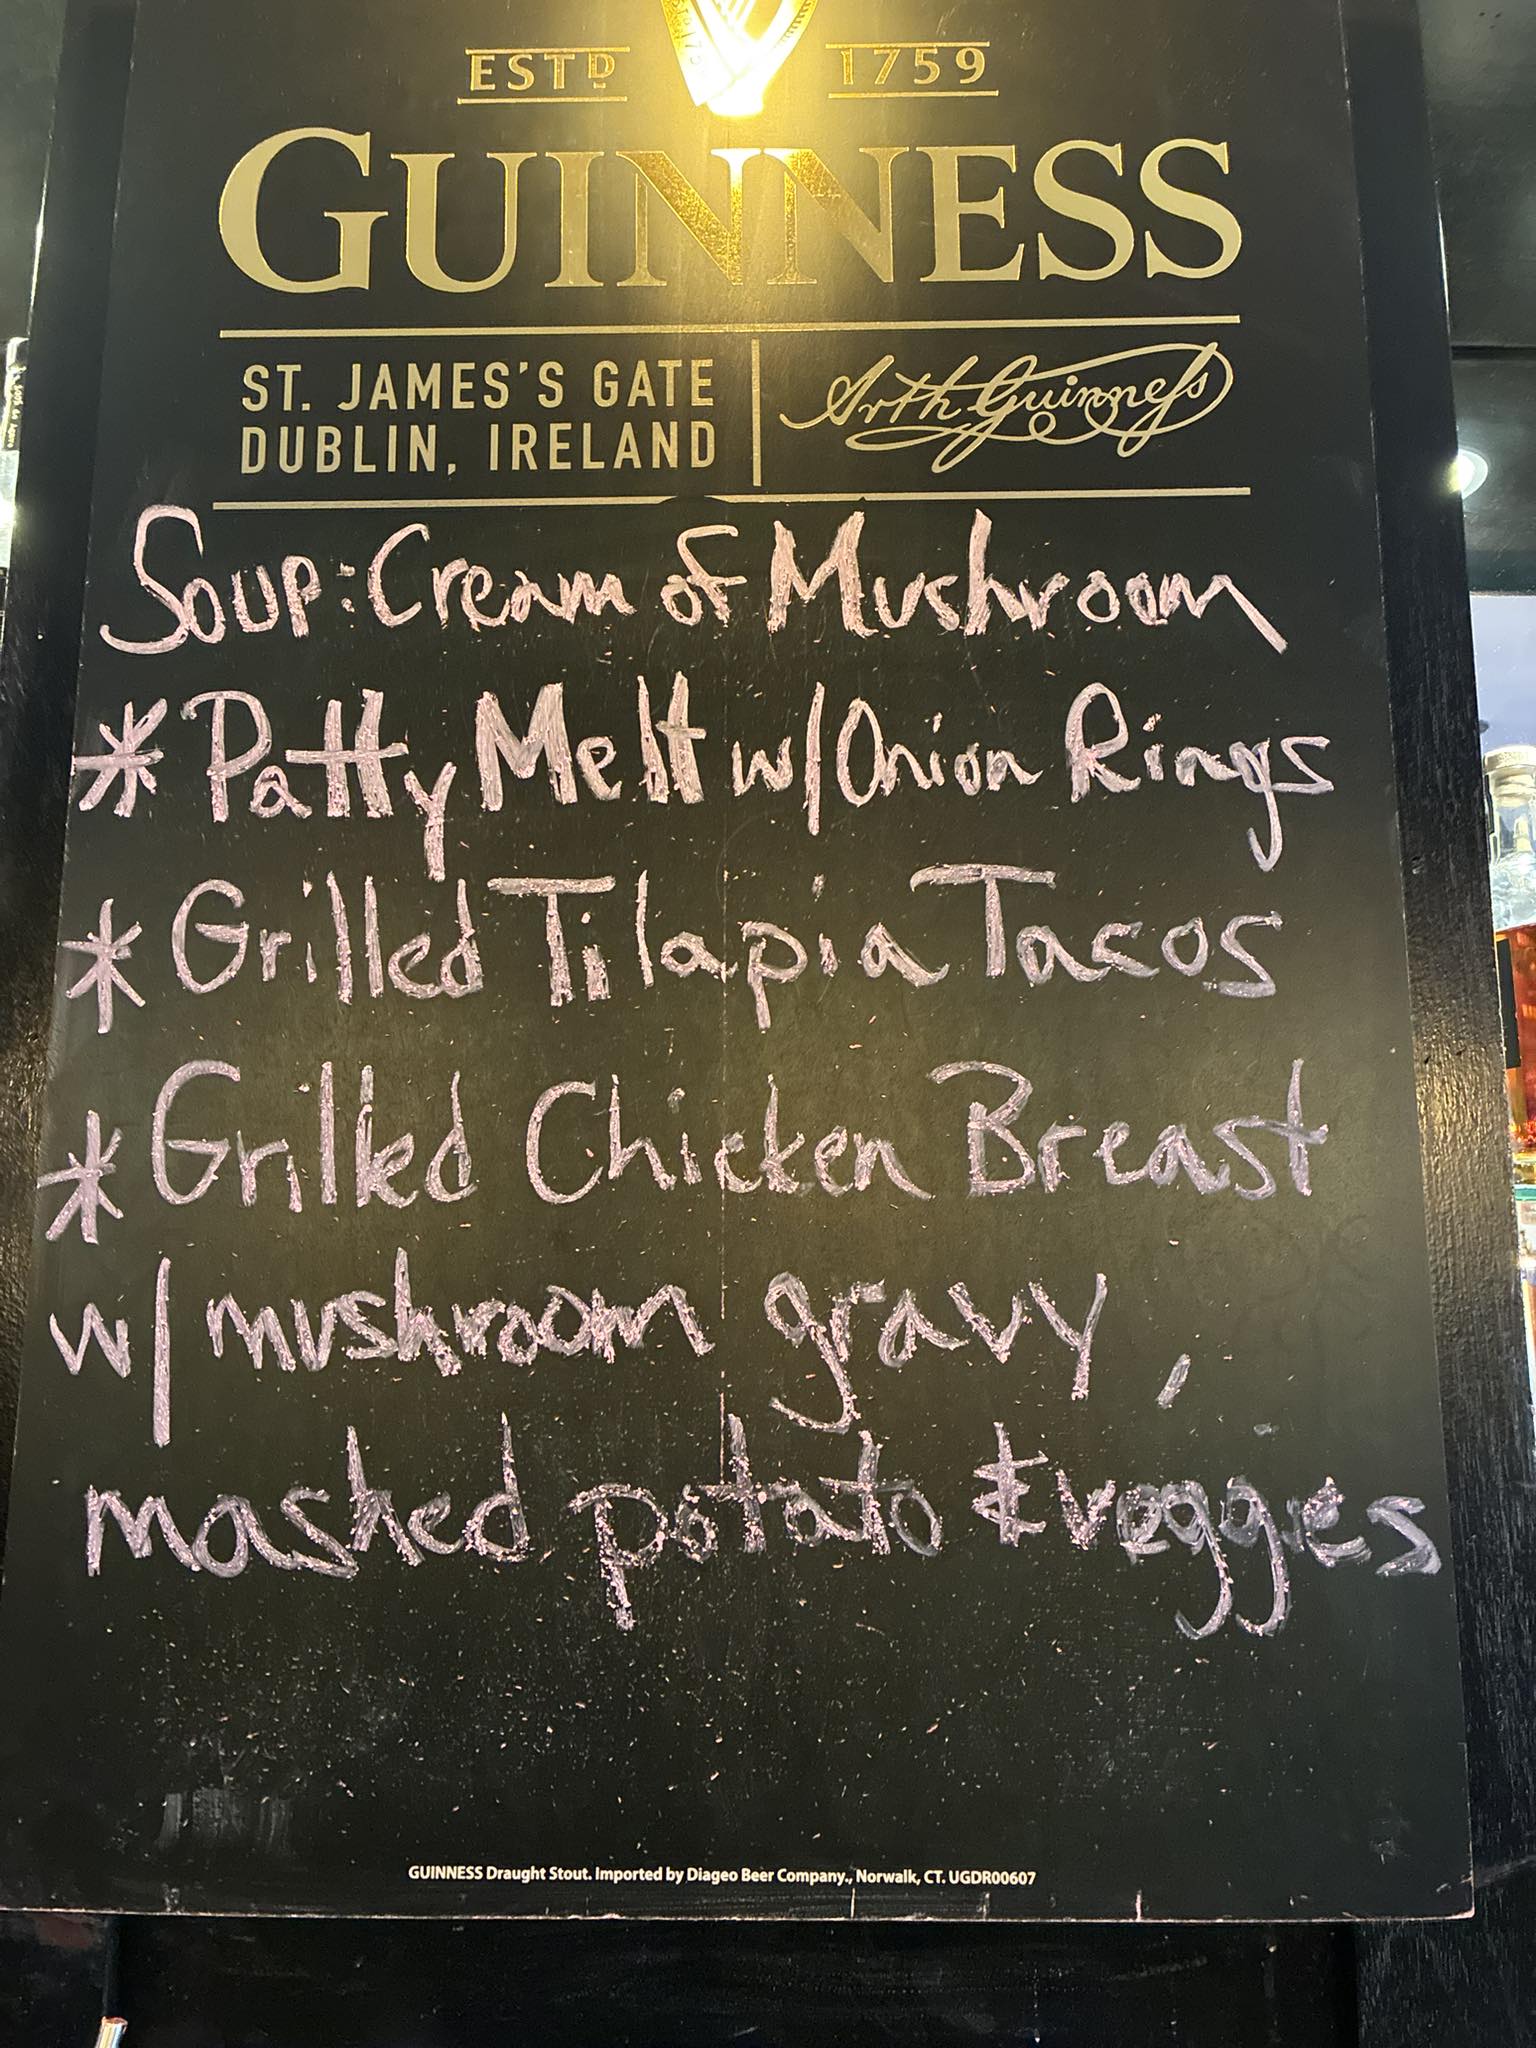 ESTD 1759
GUINNESS
ST. JAMES'S GATE
DUBLIN, IRELAND
Arth Guinness
Soup: Cream of Mushroom
* Patty Melt w/ Onion Rings
* Grilled Tilapia Tacos
* Grilled Chicken Breast
w/ mushroom gravy,
mashed potato & veggies
GUINNESS Draught Stout. Imported by Diageo Beer Company., Norwalk, CT. UGDR00607